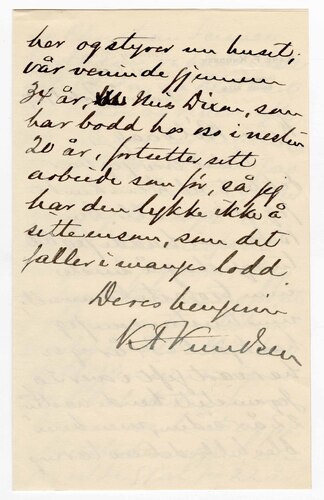 her og styrer nu huset;
vår veninde gjennem
34 år, Miss Dixon, som
har bodd hos oss i nesten
20 år, fortsetter sitt
arbeide som før, så jeg
har den lykke ikke å
sitte ensom, som det
faller i manges lodd
Deres hengivne
K A Knudsen